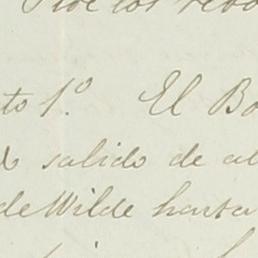 por los rebo
to 1º. El Bo
salido de al
de Wilde hasta